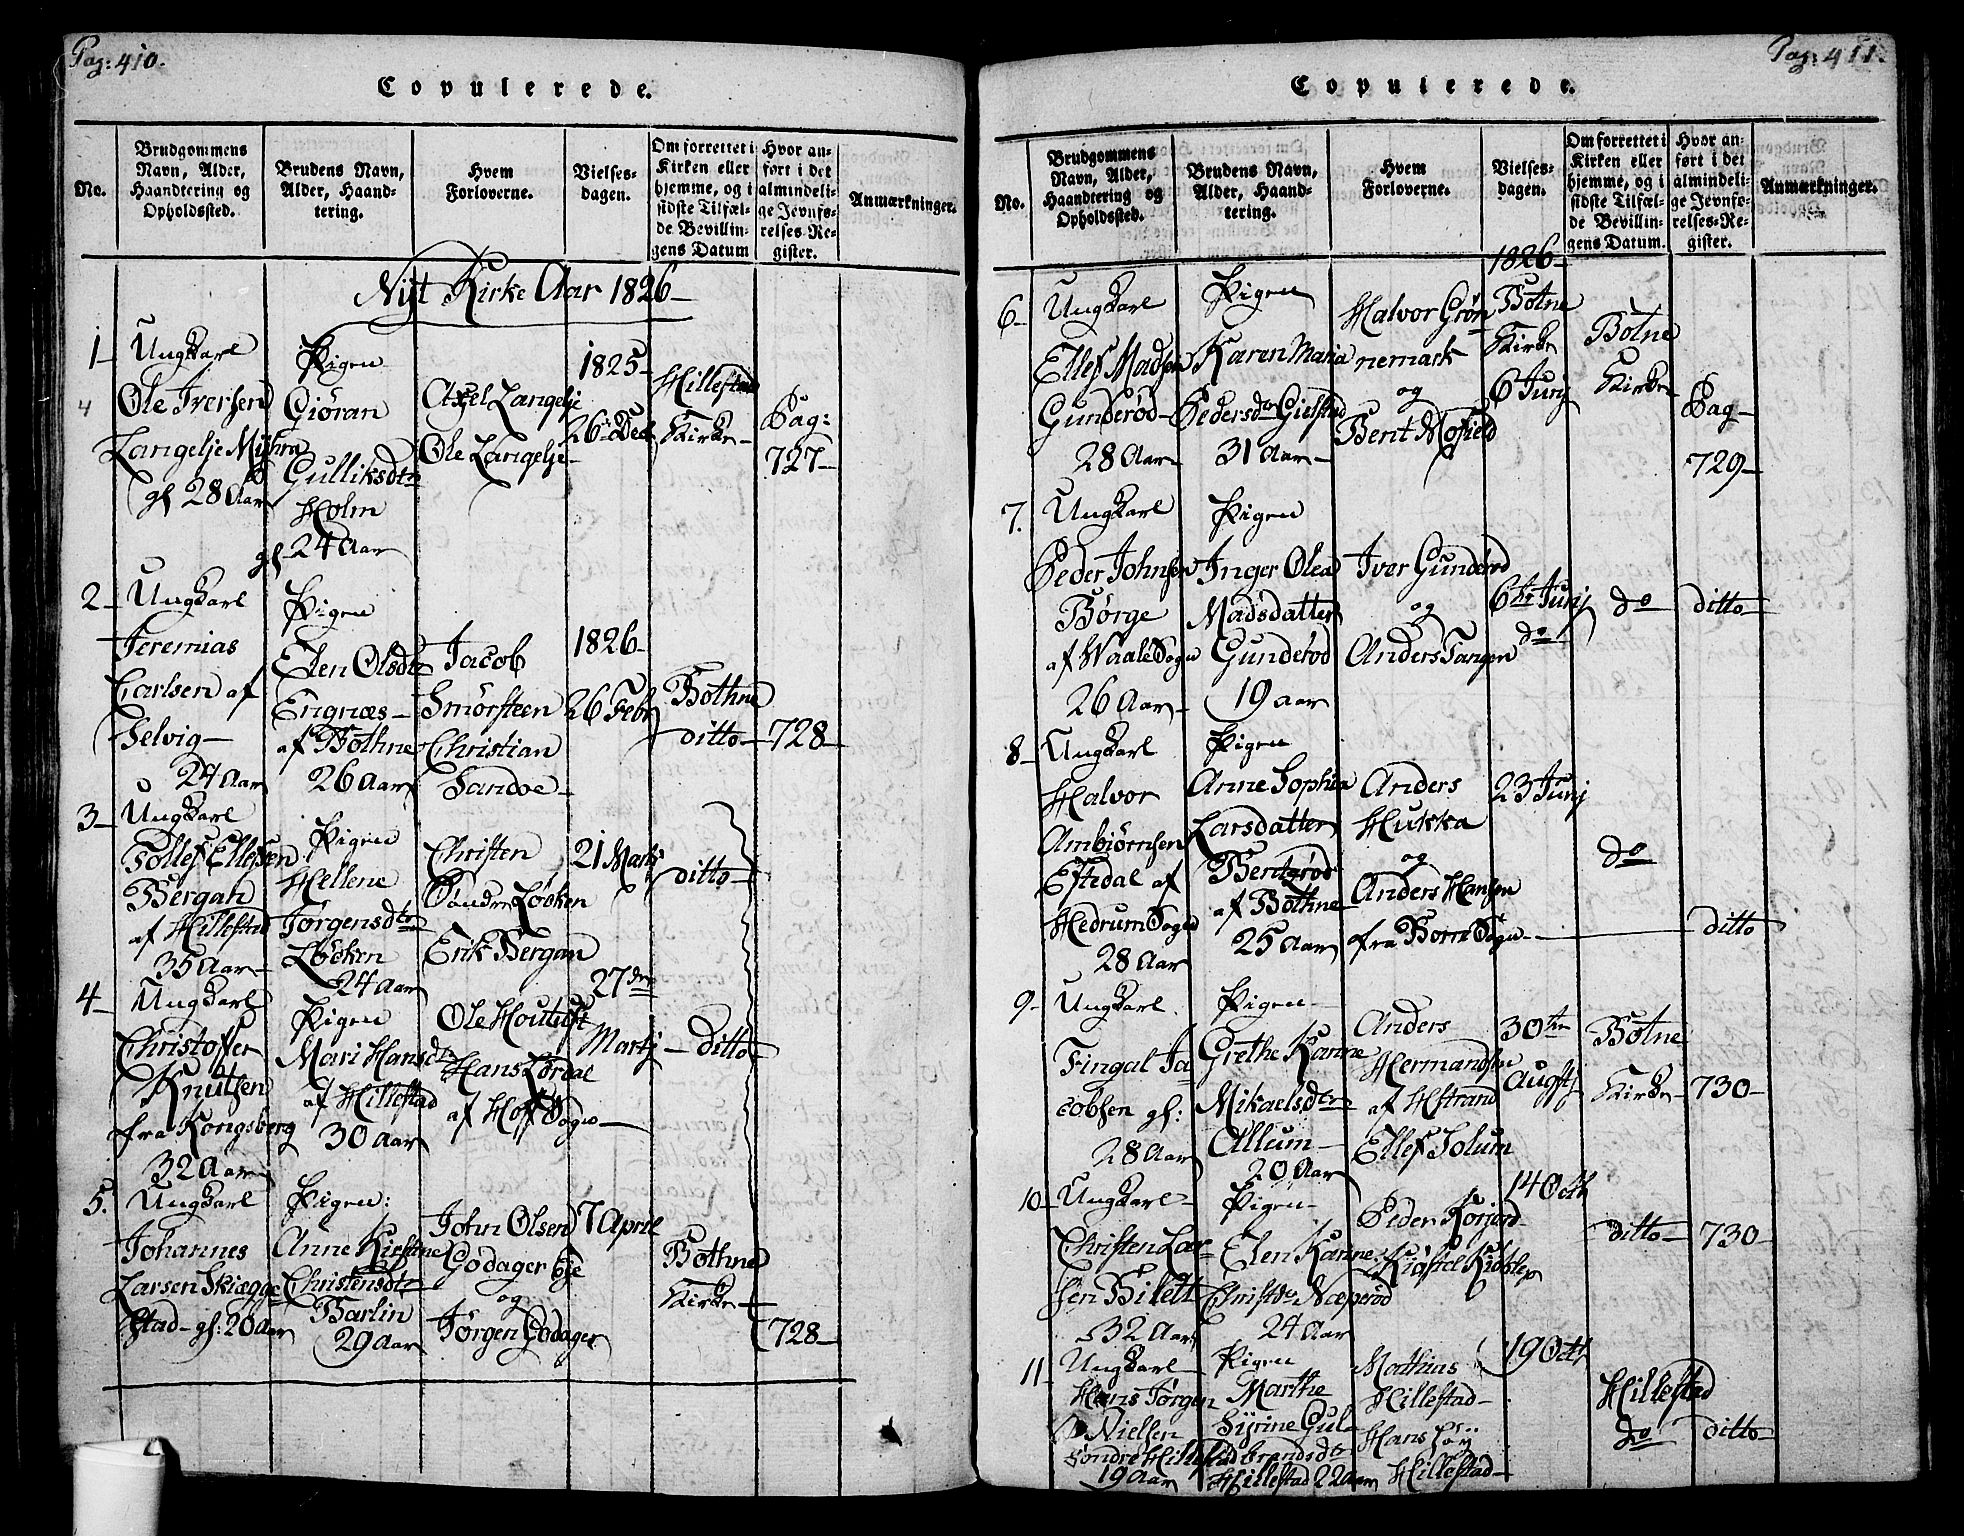 Pag: 410.
Copulerede.
No.
Brudgommens
Navn, Alder,
Haandtering og
Opholdssted.
Brudens Navn,
Alder, Haand-
tering.
Hvem
Forloverne.
Vielses-
dagen.
Om forrettet i
Kirken eller
hjemme, og i
sidste Tilfæl-
de Bevillin-
gens Datum
Hvor an-
ført i det
almindeli-
ge Jevnfø-
relses-Re-
gister.
Anmærkninger.
Nyt Kirke Aar 1826
1
Ungkarl
Ole Iversen
Langelje Myhra
gl 28 Aar
Pigen
Giøran
Gulliksdtr
Holm
gl 24 Aar
Axel Langelje
Ole Langelje
1825
26 Dec
Hillestad
Kirke
Pag:
727
2
Ungkarl
Jeremias
Carlsen af
Selvig
24 Aar
Pigen
Elen Olsdtr
Engnæs
af Bothne
26 Aar
Jacob
Smörsteen
Christian
Sandoe
1826
26 Febr
Bothne
ditto
728
3
Ungkarl
Tollef Ellefsen
Bergan
af Hillestad
35 Aar
Pigen
Hellene
Jørgensdtr
Løcken
24 Aar
Christen
Søndre Løcken
Erik Bergan
21 Marts
ditto
4
Ungkarl
Christoffer
Knutsen
fra Kongsberg
32 Aar
Pigen
Mari Hansdtr
af Hillestad
30 Aar
Ole
Hans
af Hoff Sogn
27de
Martj
ditto
5.
Ungkarl
Johannes
Larsen Skiægge
stad gl: 20 Aar
Pigen:
Anne Kirstine
Christensdtr
Barlin
29 Aar
John Olsen
Godager Eje
og
Jørgen Godager
7 April
Bothne
Kirke
728
Pag: 411.
Copulerede.
No.
Brudgommens
Navn, Alder,
Haandtering og
Opholdssted.
Brudens Navn,
Alder, Haand-
tering.
Hvem
Forloverne.
Vielses-
dagen.
Om forrettet i
Kirken eller
hjemme, og i
sidste Tilfæl-
de Bevillin-
gens Datum.
Hvor an-
ført i det
almindeli-
ge Jevnfø-
relses-Re-
gister.
Anmærkninger.
6
Ungkarl
Ellef Madsen
Gunderød
28 Aar
Pigen
Karen Maria
Pedersdr Gielstad
31 Aar
Halvor Grøn
nemark
og
Berit
1826
Botne
Kirke
6 Junj
Botne
Kirke
Pag
729
7.
Ungkarl
Peder Johnsen
Børge
af Waale Sogn
26 Aar
Pigen
Inger Olea
Madsdatter
Gunderød
19 aar
Iver Gunderød
og
Anders Tangen
6te Junj
do
do
ditto
8
Ungkarl
Halvor
Ambiørnsen
af
Hedrum Sogn
28 Aar
Pigen
Anne Sophia
Larsdatter
Bentzrød
af Bothne
25 Aar
Anders
Hukka
og
Anders Hansen
fra Borre Sogn
23 Junj
do
ditto
9
Ungkarl
Fingal Ja
cobsen gl:
28 Aar
Pigen
Grethe Karine
Mikaelsdtr
Allum
20 Aar
Anders
Hermandsen
af Hstrand
Ellef Solum
30te
Augstj
Botne
Kirke
730
10
Ungkarl
Christen Lar
sen Bilett
32 Aar
Pigen
Elen Karine
Christdr Næperød
24 Aar
Peder
14 Octb
ditto
730
11
Ungkarl
Hans Jørgen
Nielsen
Søndre Hillestad
19 Aar
Pigen
Marthe
Syrine Gul
brandsdtr
Hillestad 22 aar
Mathias
Hillestad
Hans
Hillestad
19 Octb
Hillestad
do
ditto